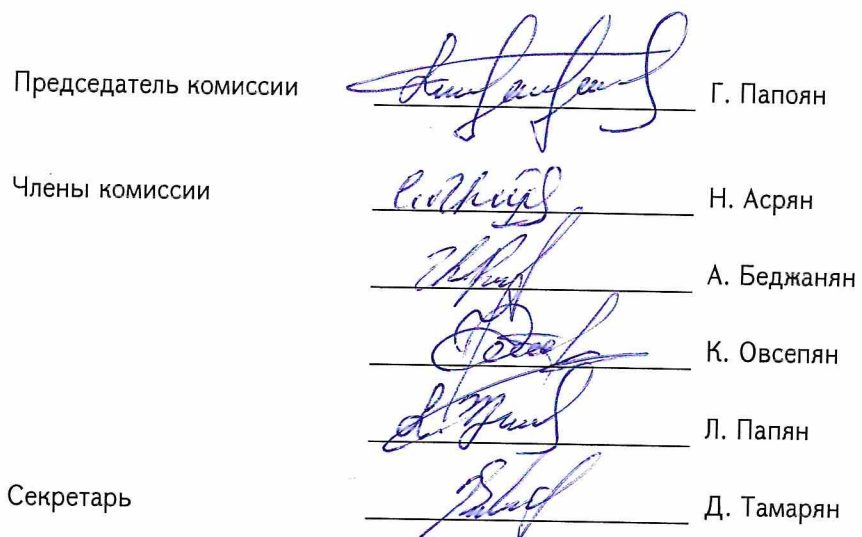 Председатель комиссии Г. Папоян
Члены комиссии Н. Асрян
А. Беджанян
К. Овсепян
Л. Папян
Секретарь Д. Тамарян